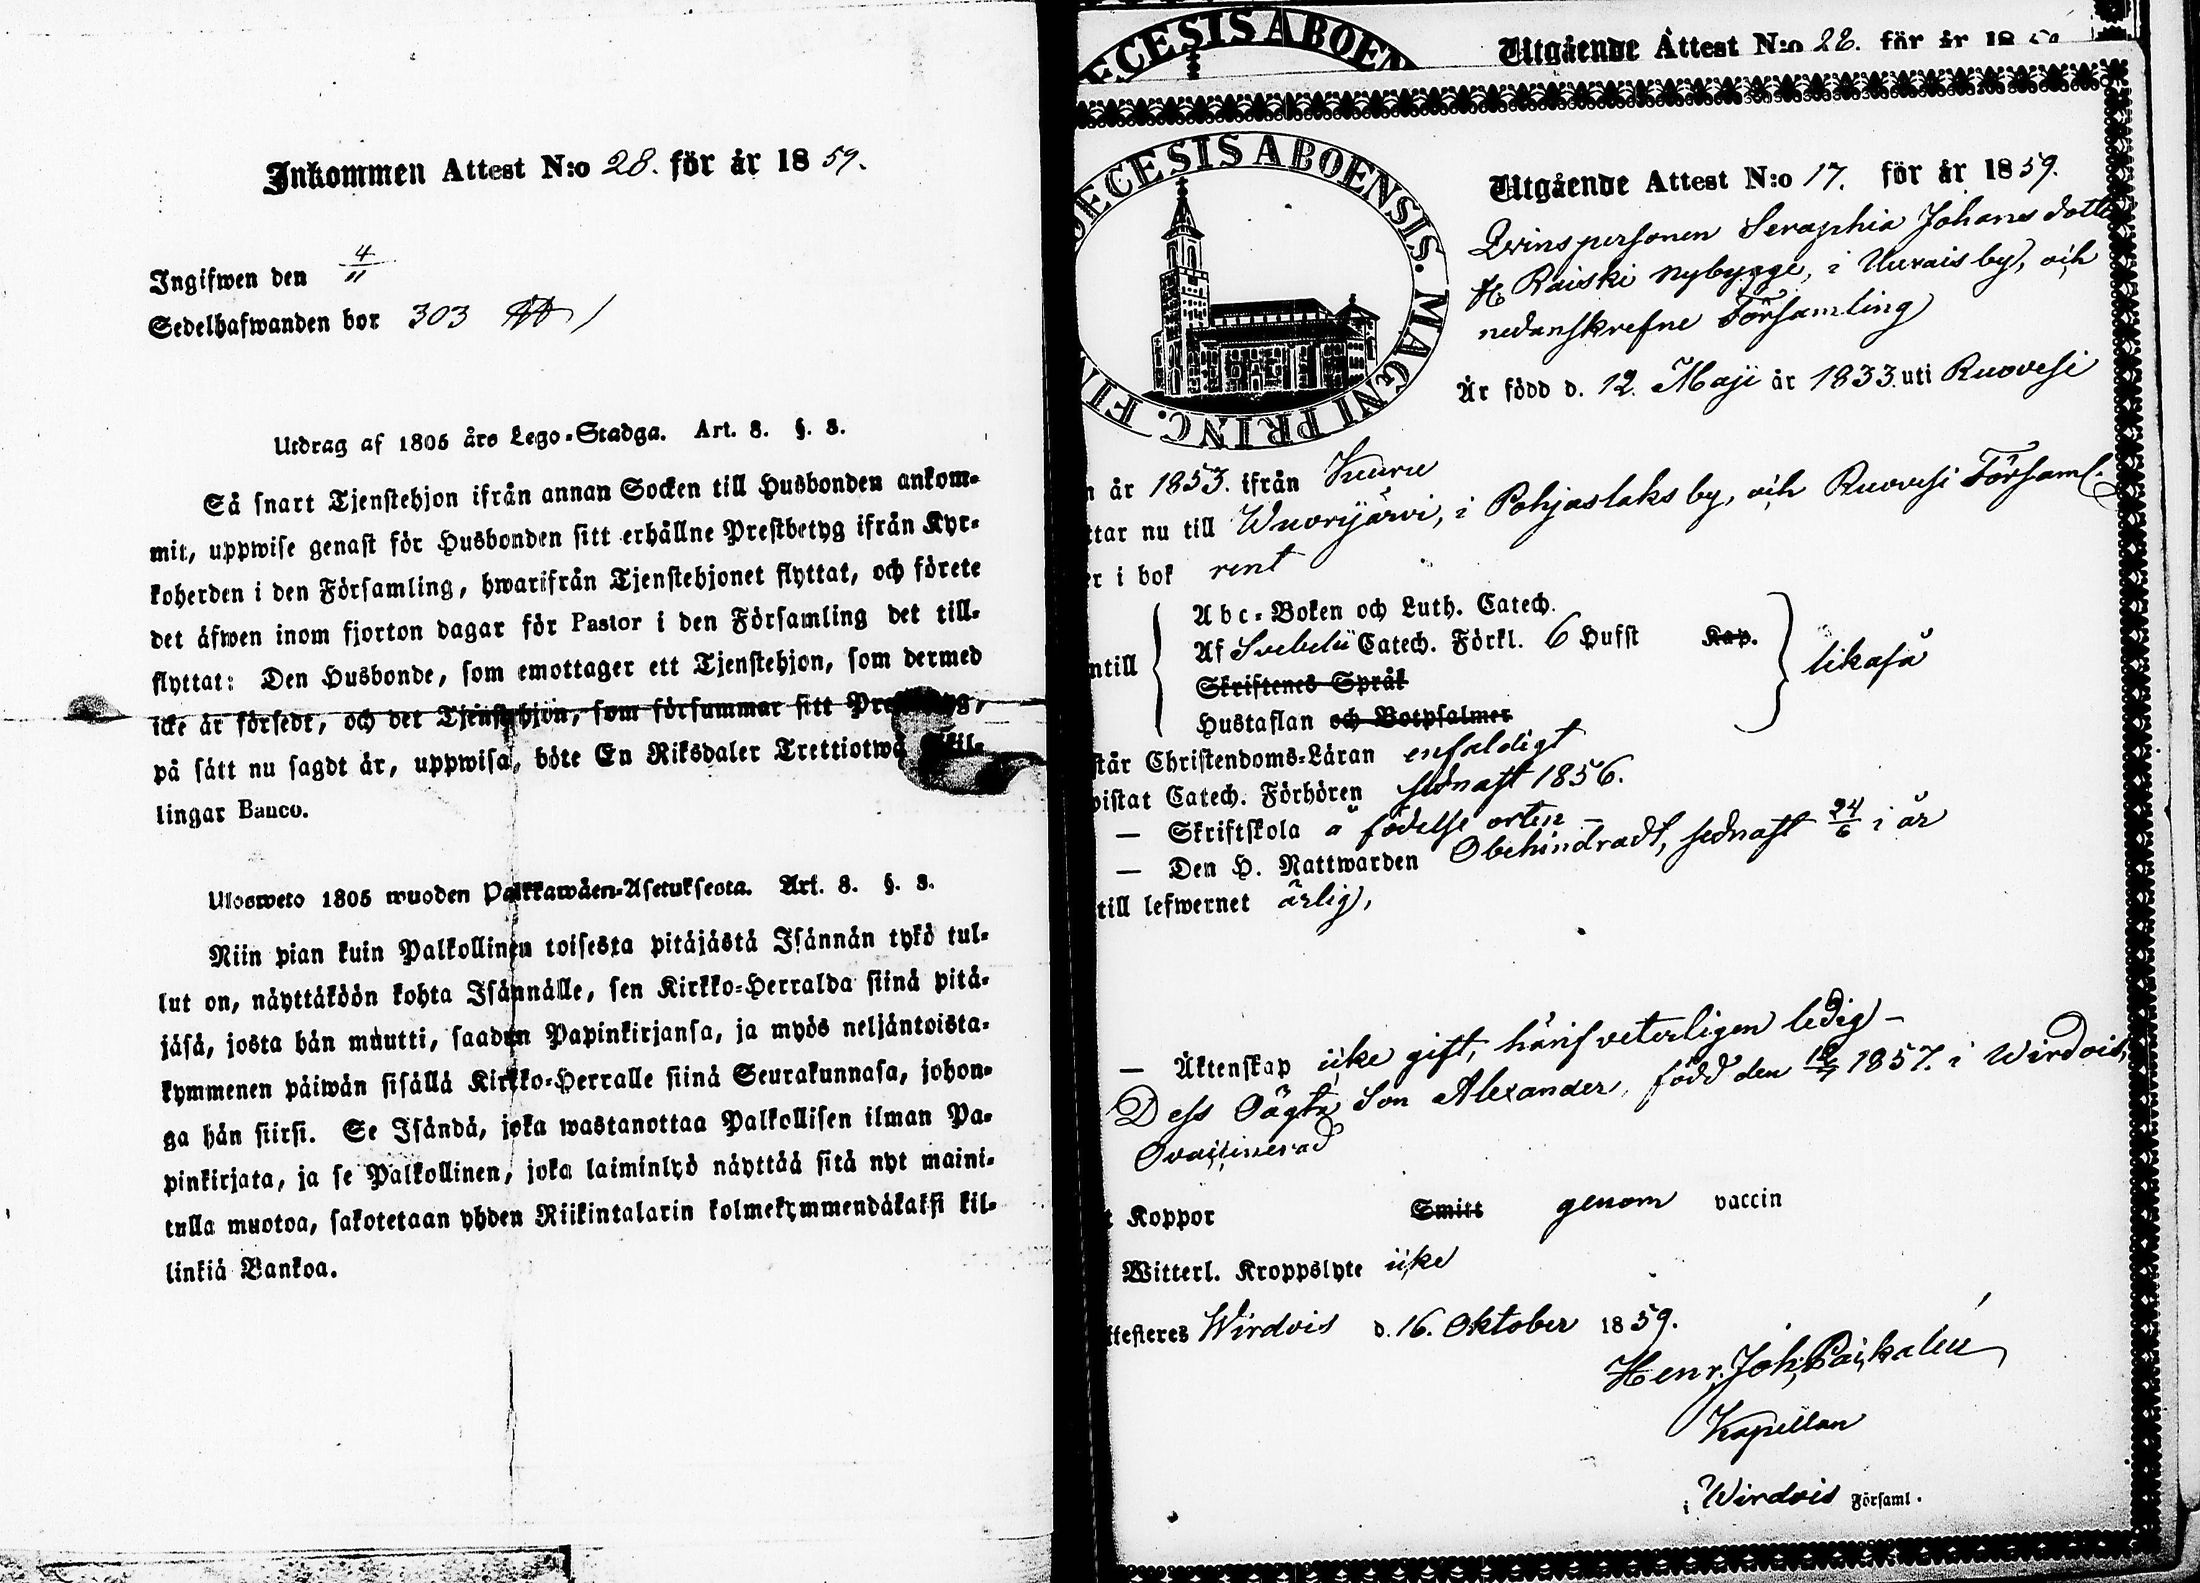 Inkommen Attest N:o 28. för år 18 59.
Ingifwen den 4/11
Sedelhafwanden bor 303
Utdrag af 1805 års Lego-Stadga. Art. 8. §. 3.
Så snart Tjenstehjon ifrån annan Socken till Husbonden ankom-
mit, uppwise genast för Husbonden sitt erhållne Prestbetyg ifrån Kyr-
koherden i den Församling, hwarifrån Tjenstehjonet flyttat, och förete
det äfwen inom fjorton dagar för Pastor i den Församling det till-
flyttat: Den Husbonde, som emottager ett Tjenstehjon, som dermed
icke är försedt, och det Tjenstehjon, som försummar sitt Prestbetyg,
på sätt nu sagdt är, uppwisa, böte En Riksdaler Trettiotwå Skil-
lingar Banco.
Ulosweto 1805 wuoden Palkkawäen-Asetuksesta. Art. 8. §. 3.
Niin pian kuin Palkollinen toisesta pitäjästä Isännän tykö tul-
lut on, näyttäköön kohta Isännälle, sen Kirkko-Herralda siinä pitä-
jäsä, josta hän muutti, saadun Papinkirjansa, ja myös neljäntoista-
kymmenen päiwän sisällä Kirkko-Herralle siinä Seurakunnasa, johon-
ga hän siirsi. Se Isändä, joka wastanottaa Palkollisen ilman Pa-
pinkirjata, ja se Palkollinen, joka laiminlyö näyttää sitä nyt maini-
tulla muotoa, sakotetaan yhden Riikintalarin kolmekymmendäkaksi kil-
linkiä Bankoa.
ECESIS ABOEN
Utgående Attest N:o 28. för år 18 59
DECESIS ABOENSIS. MAGNI PRINC. FIN
Utgående Attest N:o 17. för år 18 59.
Qvinspersonen Seraphia Johansdotter
fr. Raiski nybygge, i Uurais by, och
nedanskrefne Församling
Är född d. 12. Maji år 1833. uti Ruovesi
n år 1853. ifrån Kuru
ttar nu till Wuorijärvi, i Pohjaslaks by, och Ruovesi Församl.
er i bok rent
Abc-Boken och Luth. Catech.
ntill Af Svebelii Catech. Förkl. 6 Hufst Kap. likaså
Skriftenes Språk
Hustaflan och Botpsalmer
står Christendoms-Läran enfaldigt
vistat Catech. Förhören sednast 1856.
— Skriftskola å födelse orten –
— Den H. Nattwarden Obehindradt, sednast 24/6 i år
till lefwernet ärlig,
— Äktenskap icke gift, hänsveterligen ledig –
Dess Oägta Son Alexander, född den 12/7 1857. i Wirdois,
Ovaccinerad
t Koppor Smitt genom vaccin
Witterl. Kroppslyte icke
ttesteres Wirdois d. 16. Oktober 18 59.
Henr. Joh. Packalén
Kapellan
i Wirdois Församl.